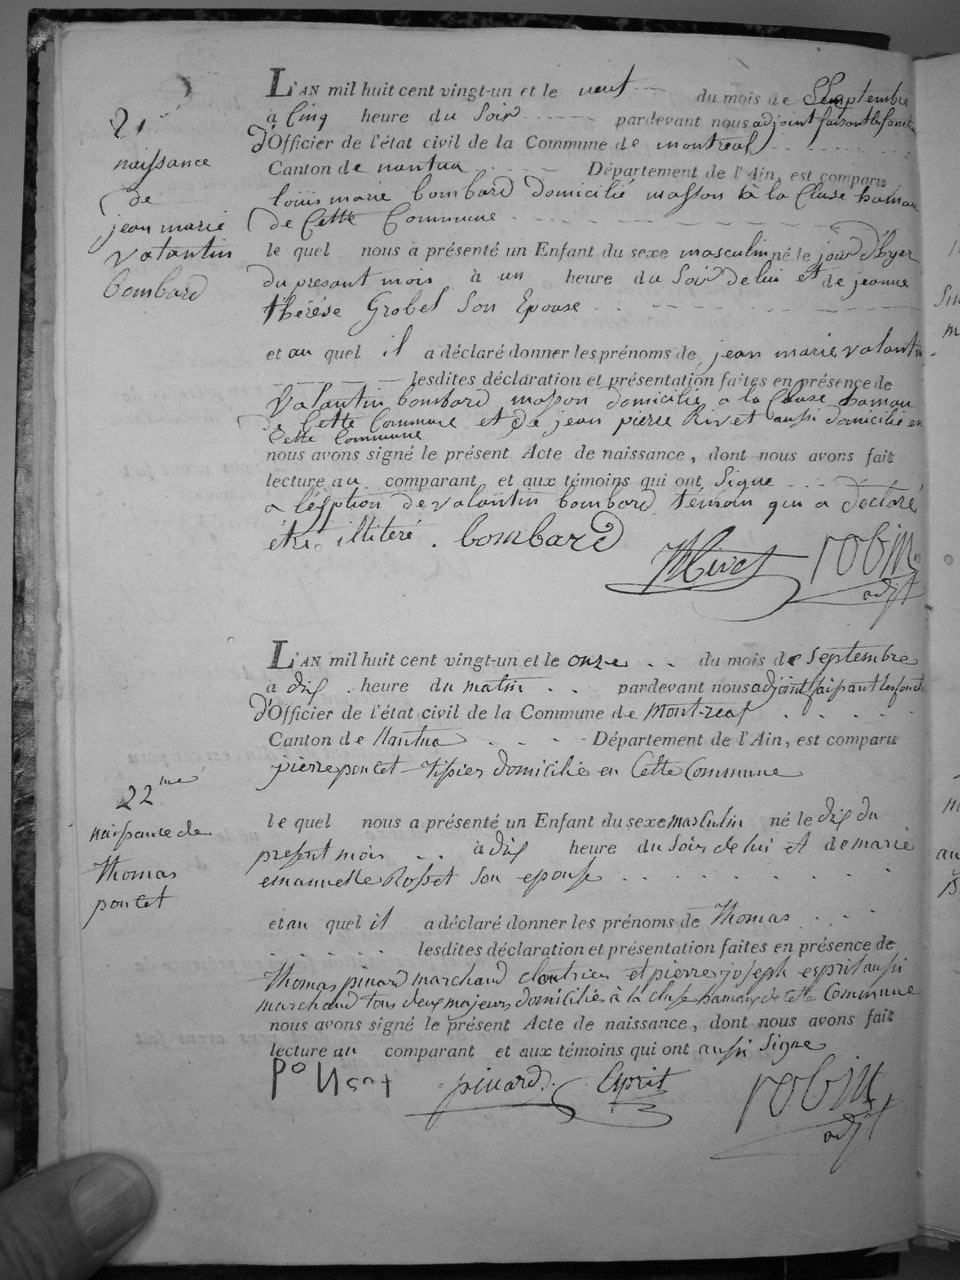 21
naissance
de
jean marie
valantin
bombard
L'AN mil huit cent vingt-un et le neuf du mois de Septembre
à Cinq heure du Soir pardevant nous adjoint faisant les fonct
d'Officier de l'état civil de la Commune de montreal
Canton de nantua Département de l'Ain, est comparu
louis marie bombard domicilié masson à la Cluse hamau
de Cette Commune
le quel nous a présenté un Enfant du sexe masculin né le jour d'hyer
du presant mois à un heure du Soir de lui et de jeanne
thérése Grobel Son Epouse
et au quel il a déclaré donner les prénoms de jean marie valantin
lesdites déclaration et présentation faites en présence de
Valantin bombard masson domicilié a la Cluse hamau
de Cette Commune et de jean pierre Rivet aussi domicilié en
Cette Commune
nous avons signé le présent Acte de naissance, dont nous avons fait
lecture au comparant et aux témoins qui ont Signe
a lésption de valantin bombard témoin qui a déclaré
étre illiteré. bombard
Rivet robin
adjt
22me
naissance de
Thomas
poncet
L'AN mil huit cent vingt-un et le onze du mois de Septembre
à dix heure du matin pardevant nous adjoint faisant les fonct
d'Officier de l'état civil de la Commune de Montreal
Canton de Nantua Département de l'Ain, est comparu
pierre poncet tissier domicilié en Cette Commune
le quel nous a présenté un Enfant du sexe masculin né le dix du
present mois à dix heure du Soir de lui et de marie
emanuelle Rosset Son epouse
et au quel il a déclaré donner les prénoms de Thomas
lesdites déclaration et présentation faites en présence de
Thomas pinard marchand cloutrier et pierre joseph esprit aussi
marchand tous deux majeurs domicilié à la cluse hamaux de cette Commune
nous avons signé le présent Acte de naissance, dont nous avons fait
lecture au comparant et aux témoins qui ont aussi Signe
pinard Esprit robin
adjt